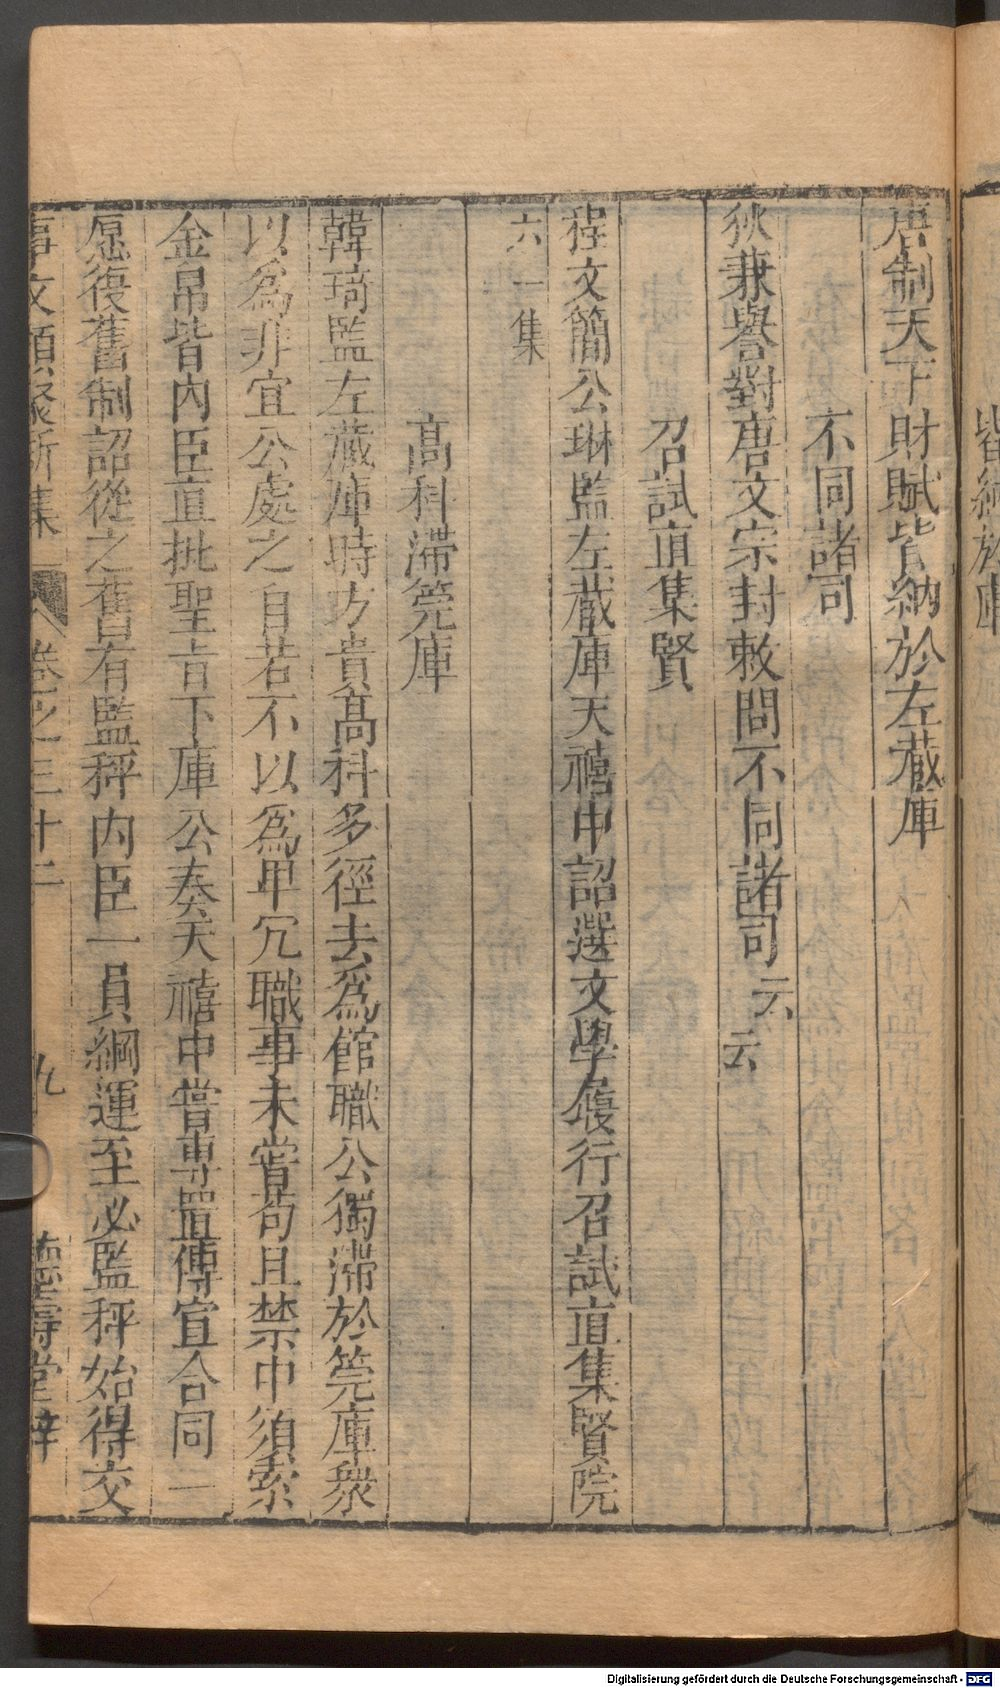 皆納於庫
唐制天下財賦皆納於左藏庫
不同諸司
狄兼謩對唐文宗封敕問不同諸司云云
召試直集賢
程文簡公琳監左藏庫天禧中詔選文學履行召試直集賢院
六一集
高科滯筦庫
韓琦監左藏庫時方貴高科多徑去爲館職公獨滯於筦庫衆
以爲非宜公處之自若不以爲卑冗職事未嘗苟且禁中須索
金帛皆內臣直批聖旨下庫公奏天禧中嘗專置傳宣合同一
愿復舊制詔從之舊有監秤內臣一員綱運至必監秤始得交
事文類聚新集 卷之三十二 九 德壽堂梓
Digitalisierung gefördert durch die Deutsche Forschungsgemeinschaft - DFG